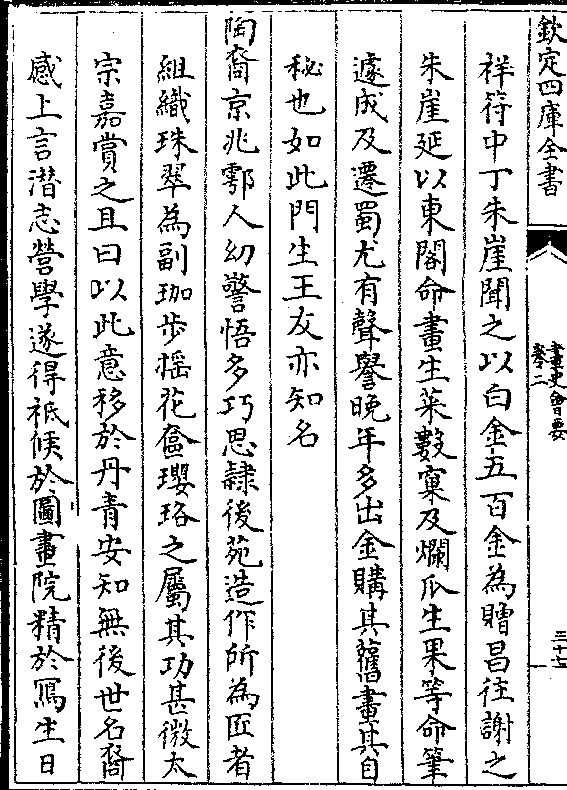 欽定四庫全書
畫史會要
卷二
三十七
祥符中丁朱崖聞之以白金五百金為贈昌往謝之
朱崖延以東閣命畫生菜數窠及爛瓜生果等命筆
遽成及還蜀尤有聲譽晚年多出金購其舊畫其自
秘也如此門生王友亦知名
陶裔京兆鄠人幼警悟多巧思隸後苑造作所為匠者
組織珠翠為副珈步搖花奩瓔珞之屬其功甚微太
宗嘉賞之且曰以此意移於丹青安知無後世名裔
感上言潛志營學遂得祗候於圖畫院精於寫生日